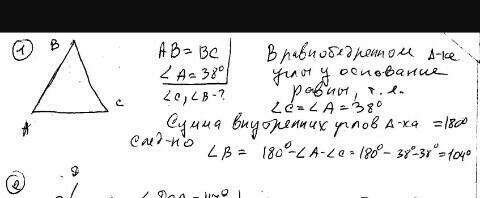 1
B
A
C
AB = BC
∠A = 38°
∠C, ∠B - ?
В равнобедренном Δ-ке
углы у основание
равны, т.е.
∠C = ∠A = 38°
Сумма внутренних углов Δ-ка = 180°
след-но
∠B = 180° - ∠A - ∠C = 180° - 38° - 38° = 104°
2
B